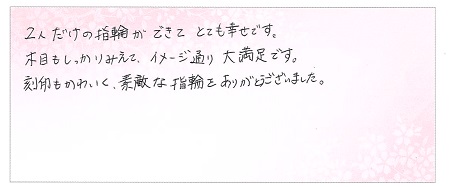 2人だけの指輪ができて とても幸せです。
木目もしっかりみえて、イメージ通り 大満足です。
刻印もかわいく、素敵な指輪をありがとうございました。